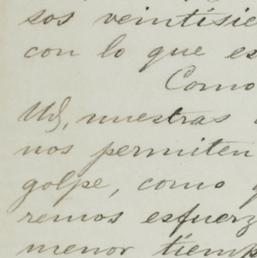 sos veintisie
con lo que es
Como
Ud, nuestras
nos permiten
golpe, como
remos esfuerz
menor tiemp